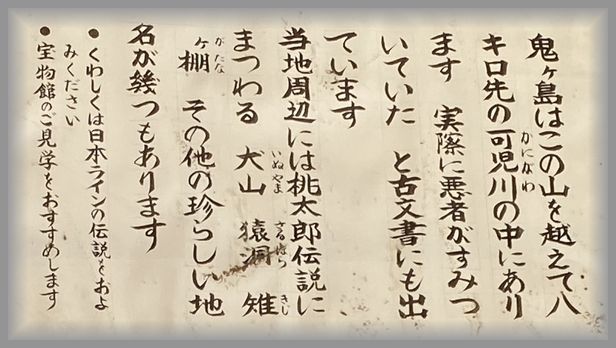 鬼ヶ島はこの山を越えて八
キロ先の可児川の中にあり
ます　実際に悪者がすみつ
いていた　と古文書にも出
ています
当地周辺には桃太郎伝説に
まつわる　犬山　猿洞　雉
ヶ棚　その他の珍らしい地
名が幾つもあります
●くわしくは日本ラインの伝説をおよ
みください
●宝物館のご見学をおすすめします
かにがわ
いぬやま
さるほら
きじ
がたな